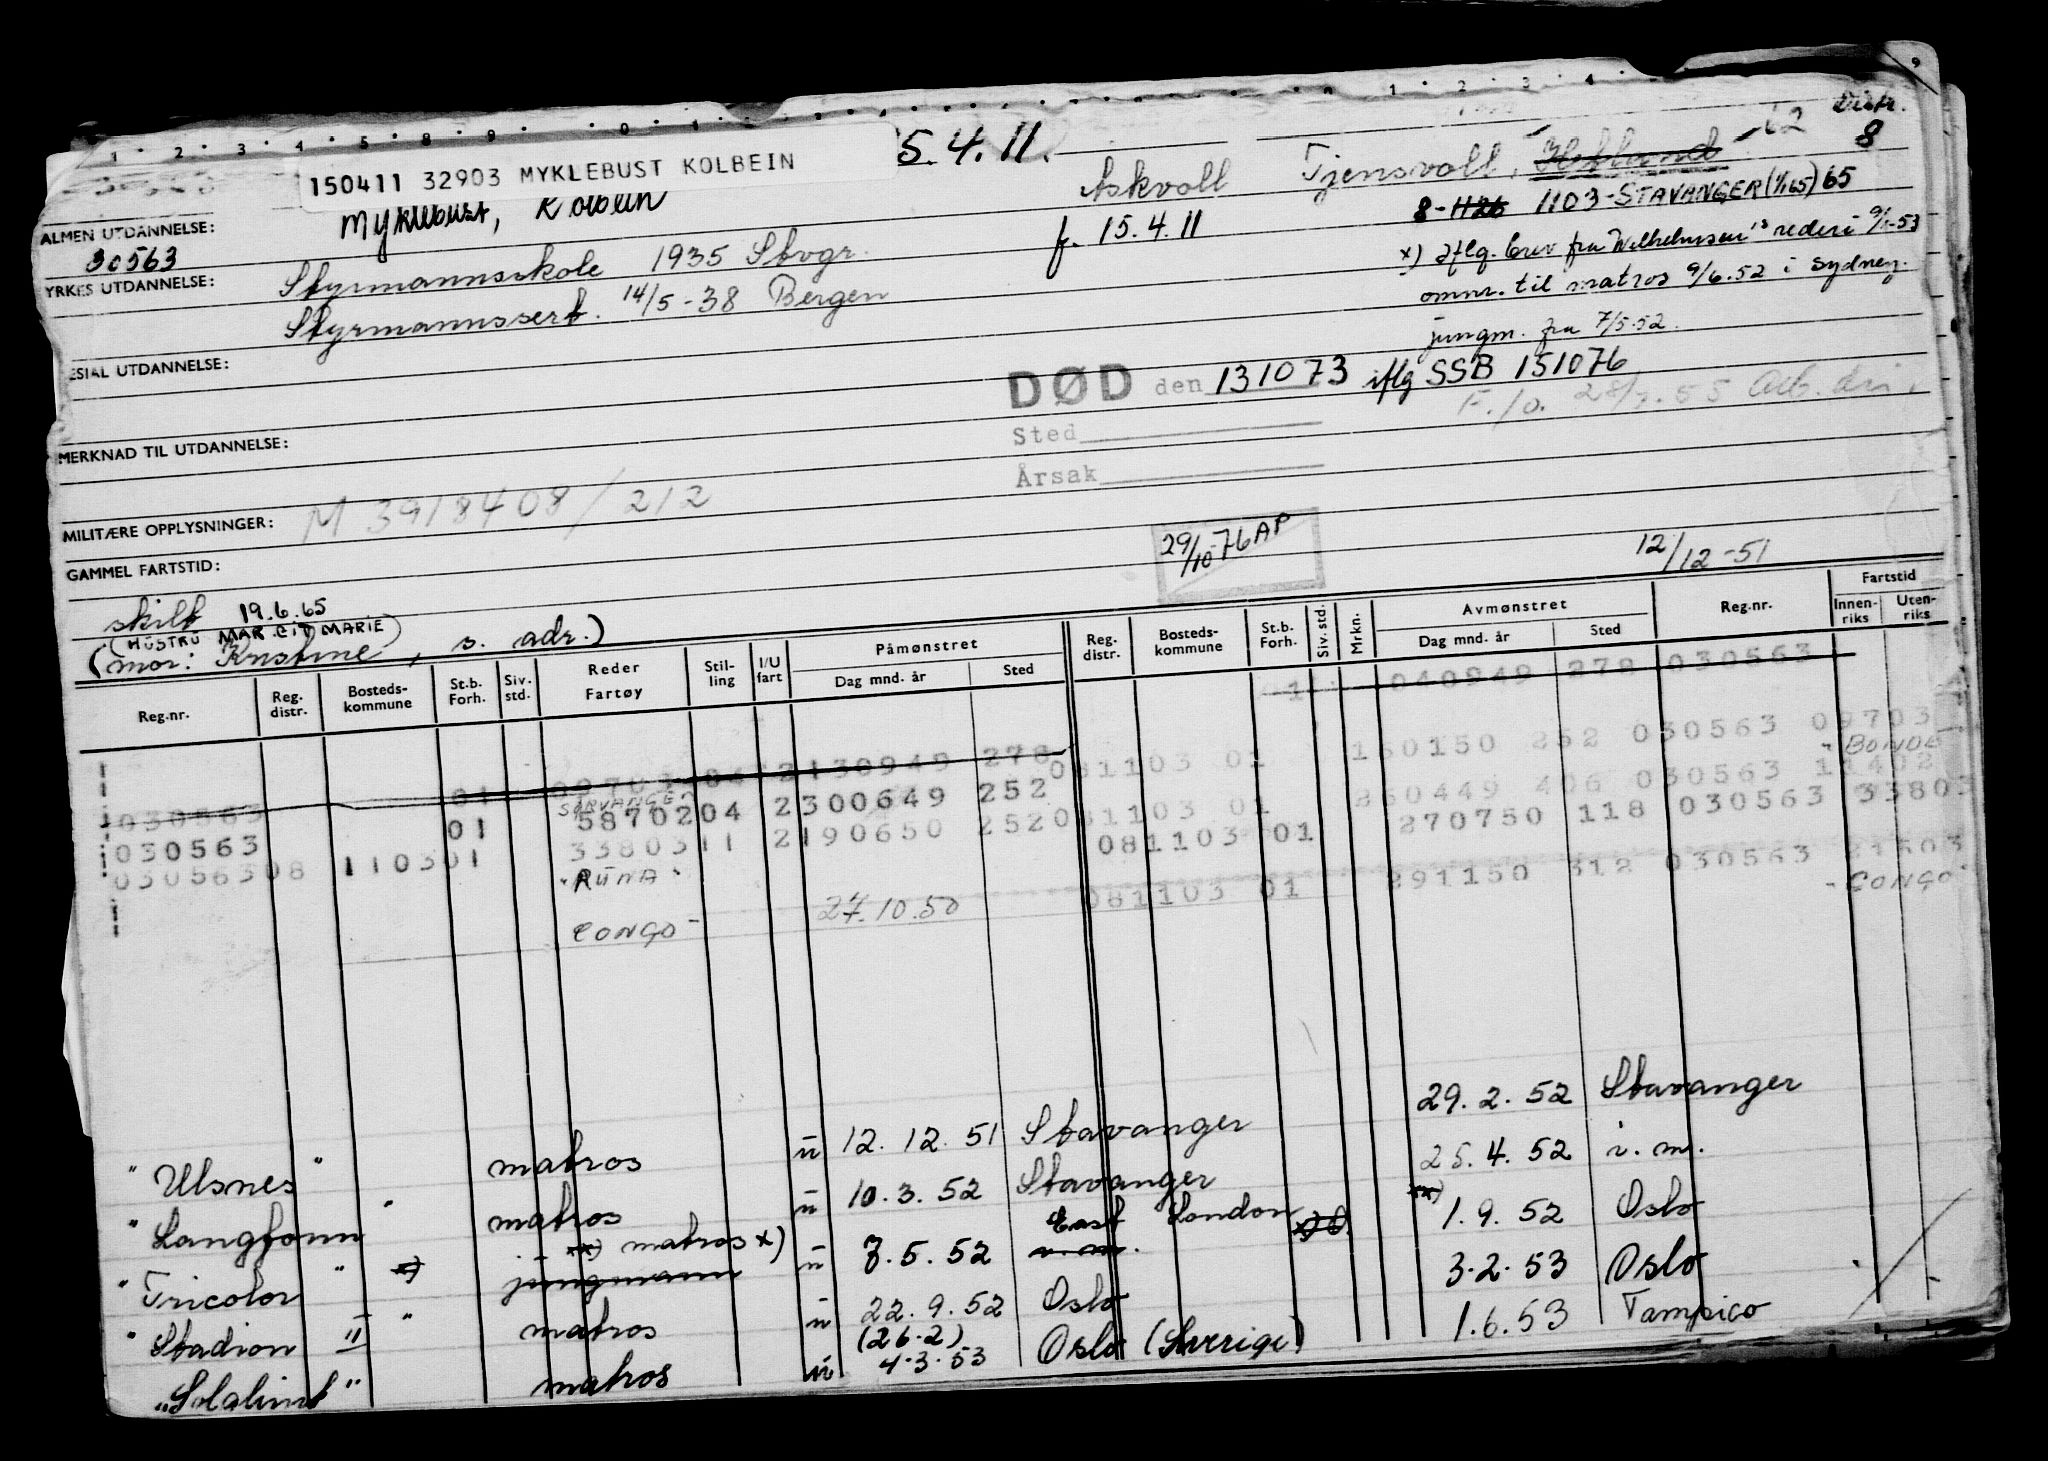 1 2 3 4 5 8 9 0 1 1 2 3 4
9
150411 32903 MYKLEBUST KOLBEIN
5.4.11.
Askvoll
Tjensvoll, Hetland -62
Distr.
8
Myklebust, Kolbein
f. 15.4.11
8-1126 1103-STAVANGER (1/1 65) 65
ALMEN UTDANNELSE:
30563
x) Iflg. brev fra Wilhelmsen's rederi 9/1-53
omm. til matros 9/6.52 i Sydney.
jungm. fra 7/5.52.
YRKES UTDANNELSE:
Styrmannsskole 1935 Stvgr.
Styrmannssert. 14/5-38 Bergen
ESIAL UTDANNELSE:
DØD den 131073 iflg SSB 151076
Sted
Årsak
MERKNAD TIL UTDANNELSE:
MILITÆRE OPPLYSNINGER: M 3918408/212
29/10-76 AP
GAMMEL FARTSTID:
12/12-51
skilt 19.6.65
(HUSTRU MARGIT MARIE)
(mor: Kristine, s. adr.)
Reg.nr. Reg. distr. Bosteds-kommune St.b. Forh. Siv. std. Reder Fartøy Stil-ling I/U fart Påmønstret Dag mnd. år Sted Reg. distr. Bosteds-kommune St.b. Forh. Siv. std. Mrkn. Avmønstret Dag mnd. år Sted Reg.nr. Fartstid Innen-riks Uten-riks
040949 278 030563
030563 01 2130949 278 081103 01 150150 252 030563 09703
030563 01 5870204 2300649 252 081103 01 250449 406 030563 11402
03056308 110301 3380311 2190650 252 081103 01 270750 118 030563 33803
"RUNA"
CONGO- 27.10.50 081103 01 291150 312 030563 21503
-CONGO-
"Ulsnes" matros u 12.12.51 Stavanger 29.2.52 Stavanger
"Langfonn" matros u 10.3.52 Stavanger 25.4.52 i.m.
xx) matros x) East London xx)
"Tricolor" x) jungmann u 7.5.52 i.m. 1.9.52 Oslo
"Stadion II" matros u 22.9.52 Oslo 3.2.53 Oslo
(26.2)
"Solglimt" matros u 4.3.53 Oslo (Sverige) 1.6.53 Tampico